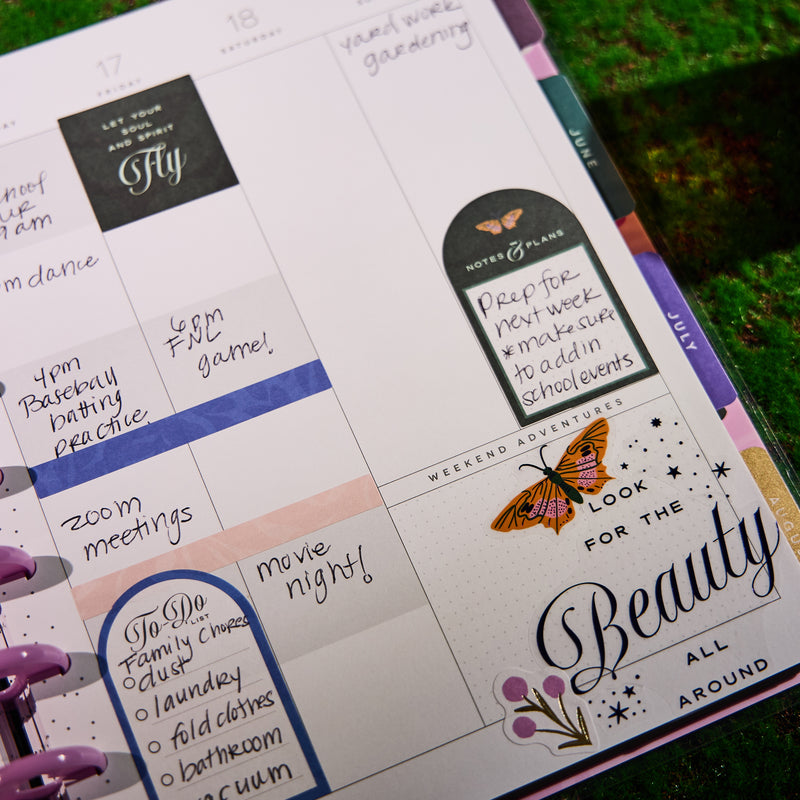 17
FRIDAY
18
SATURDAY
yard work
gardening
LET YOUR
SOUL
AND SPIRIT
Fly
9am
dance
4pm
Baseball
batting
practice
6pm
FNL
game!
zoom
meetings
movie
night!
To-Do
LIST
Family Chores
dust
laundry
fold clothes
bathroom
NOTES & PLANS
Prep for
next week
*make sure
to add in
school events
WEEKEND ADVENTURES
LOOK
FOR THE
Beauty
ALL
AROUND
JUNE
JULY